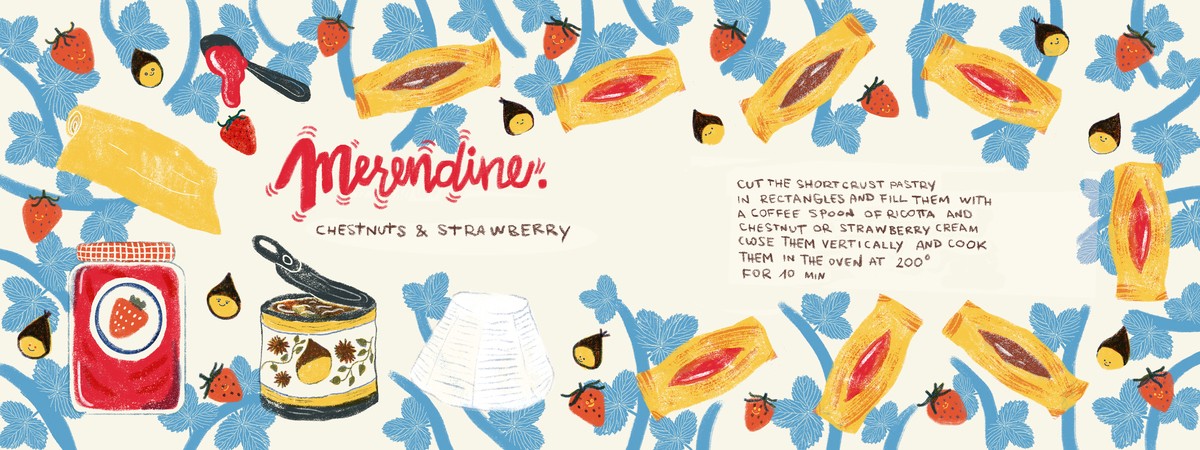 Merendine!
CHESTNUTS & STRAWBERRY
CUT THE SHORTCRUST PASTRY
IN RECTANGLES AND FILL THEM WITH
A COFFEE SPOON OF RICOTTA AND
CHESTNUT OR STRAWBERRY CREAM
CLOSE THEM VERTICALLY AND COOK
THEM IN THE OVEN AT 200°
FOR 10 MIN